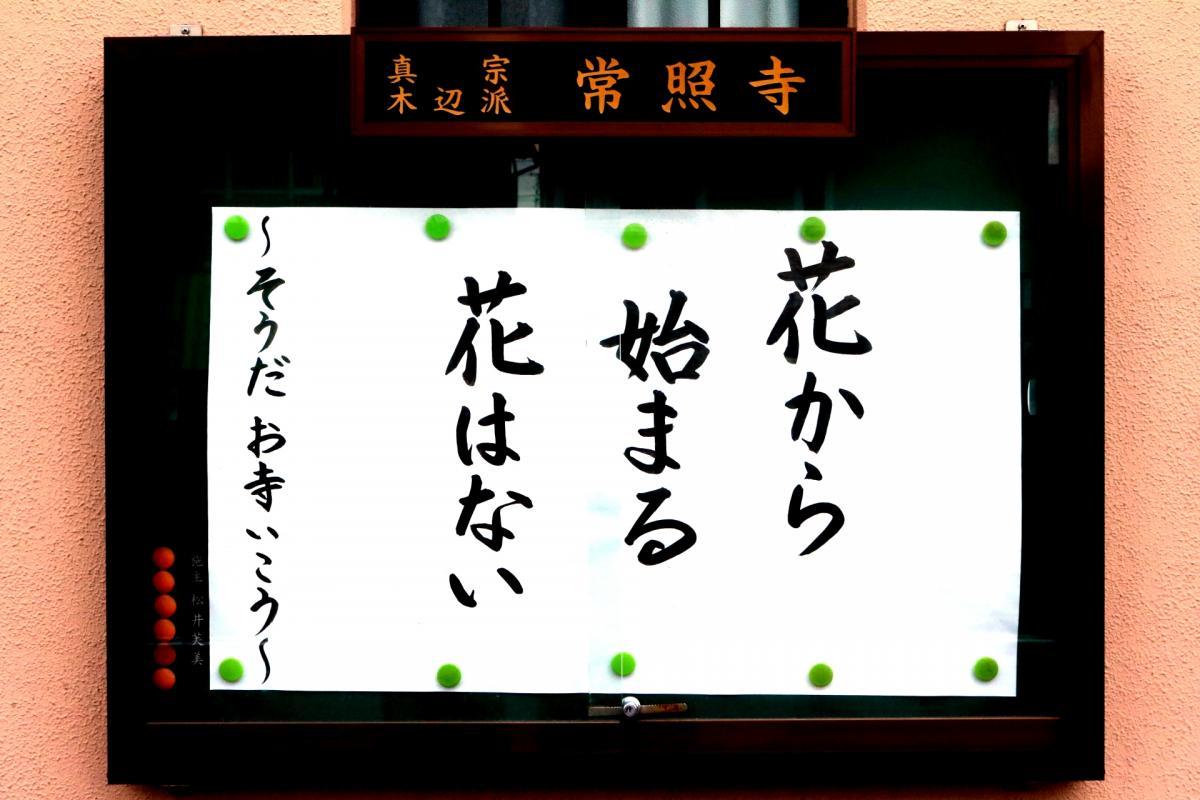 真宗
木辺派
常照寺
花から
始まる
花はない
~そうだ お寺いこう~